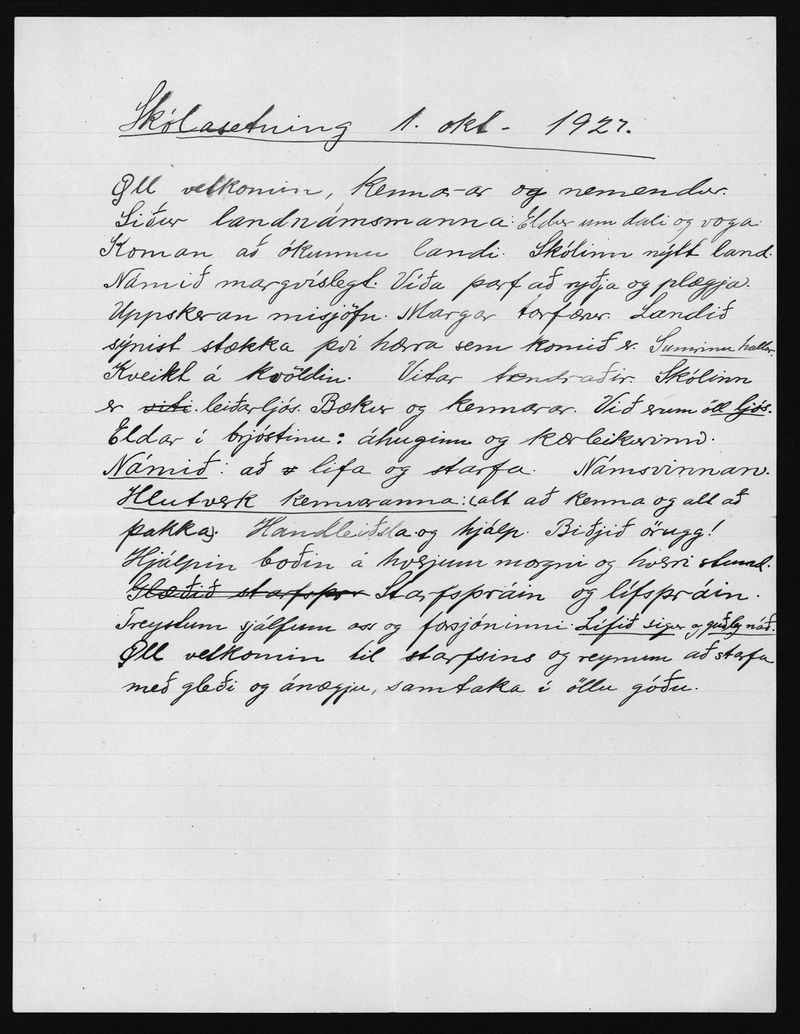 Skólasetning 1. okt - 1927.
Öll velkomin, kennarar og nemendur.
Siður landnámsmanna: Eldur um dali og voga.
Koman að ókunnu landi. Skólinn nýtt land.
Námið margvíslegt. Víða þarf að ryðja og plægja.
Uppskeran misjöfn. Margar torfærur. Landið
sýnist stækka því hærra sem komið er. Sumrinu hallar.
Kveikt á kvöldin. Vitar tendraðir. Skólinn
er viti. leiðarljós. Bækur og kennarar. Við erum öll ljós.
Eldar í brjóstinu: áhuginn og kærleikurinn.
Námið: að lifa og starfa. Námsvinnan.
Hlutverk kennaranna: (alt að kenna og alt að
þakka). Handleiðsla og hjálp. Biðjið örugg!
Hjálpin boðin á hverjum morgni og hverri stund.
Glæðið starfsþrá Starfsþráin og lífsþráin.
Treystum sjálfum oss og forsjóninni. Lífið sigur og guðleg náð.
Öll velkomin til starfsins og reynum að starfa
með gleði og ánægju, samtaka í öllu góðu.